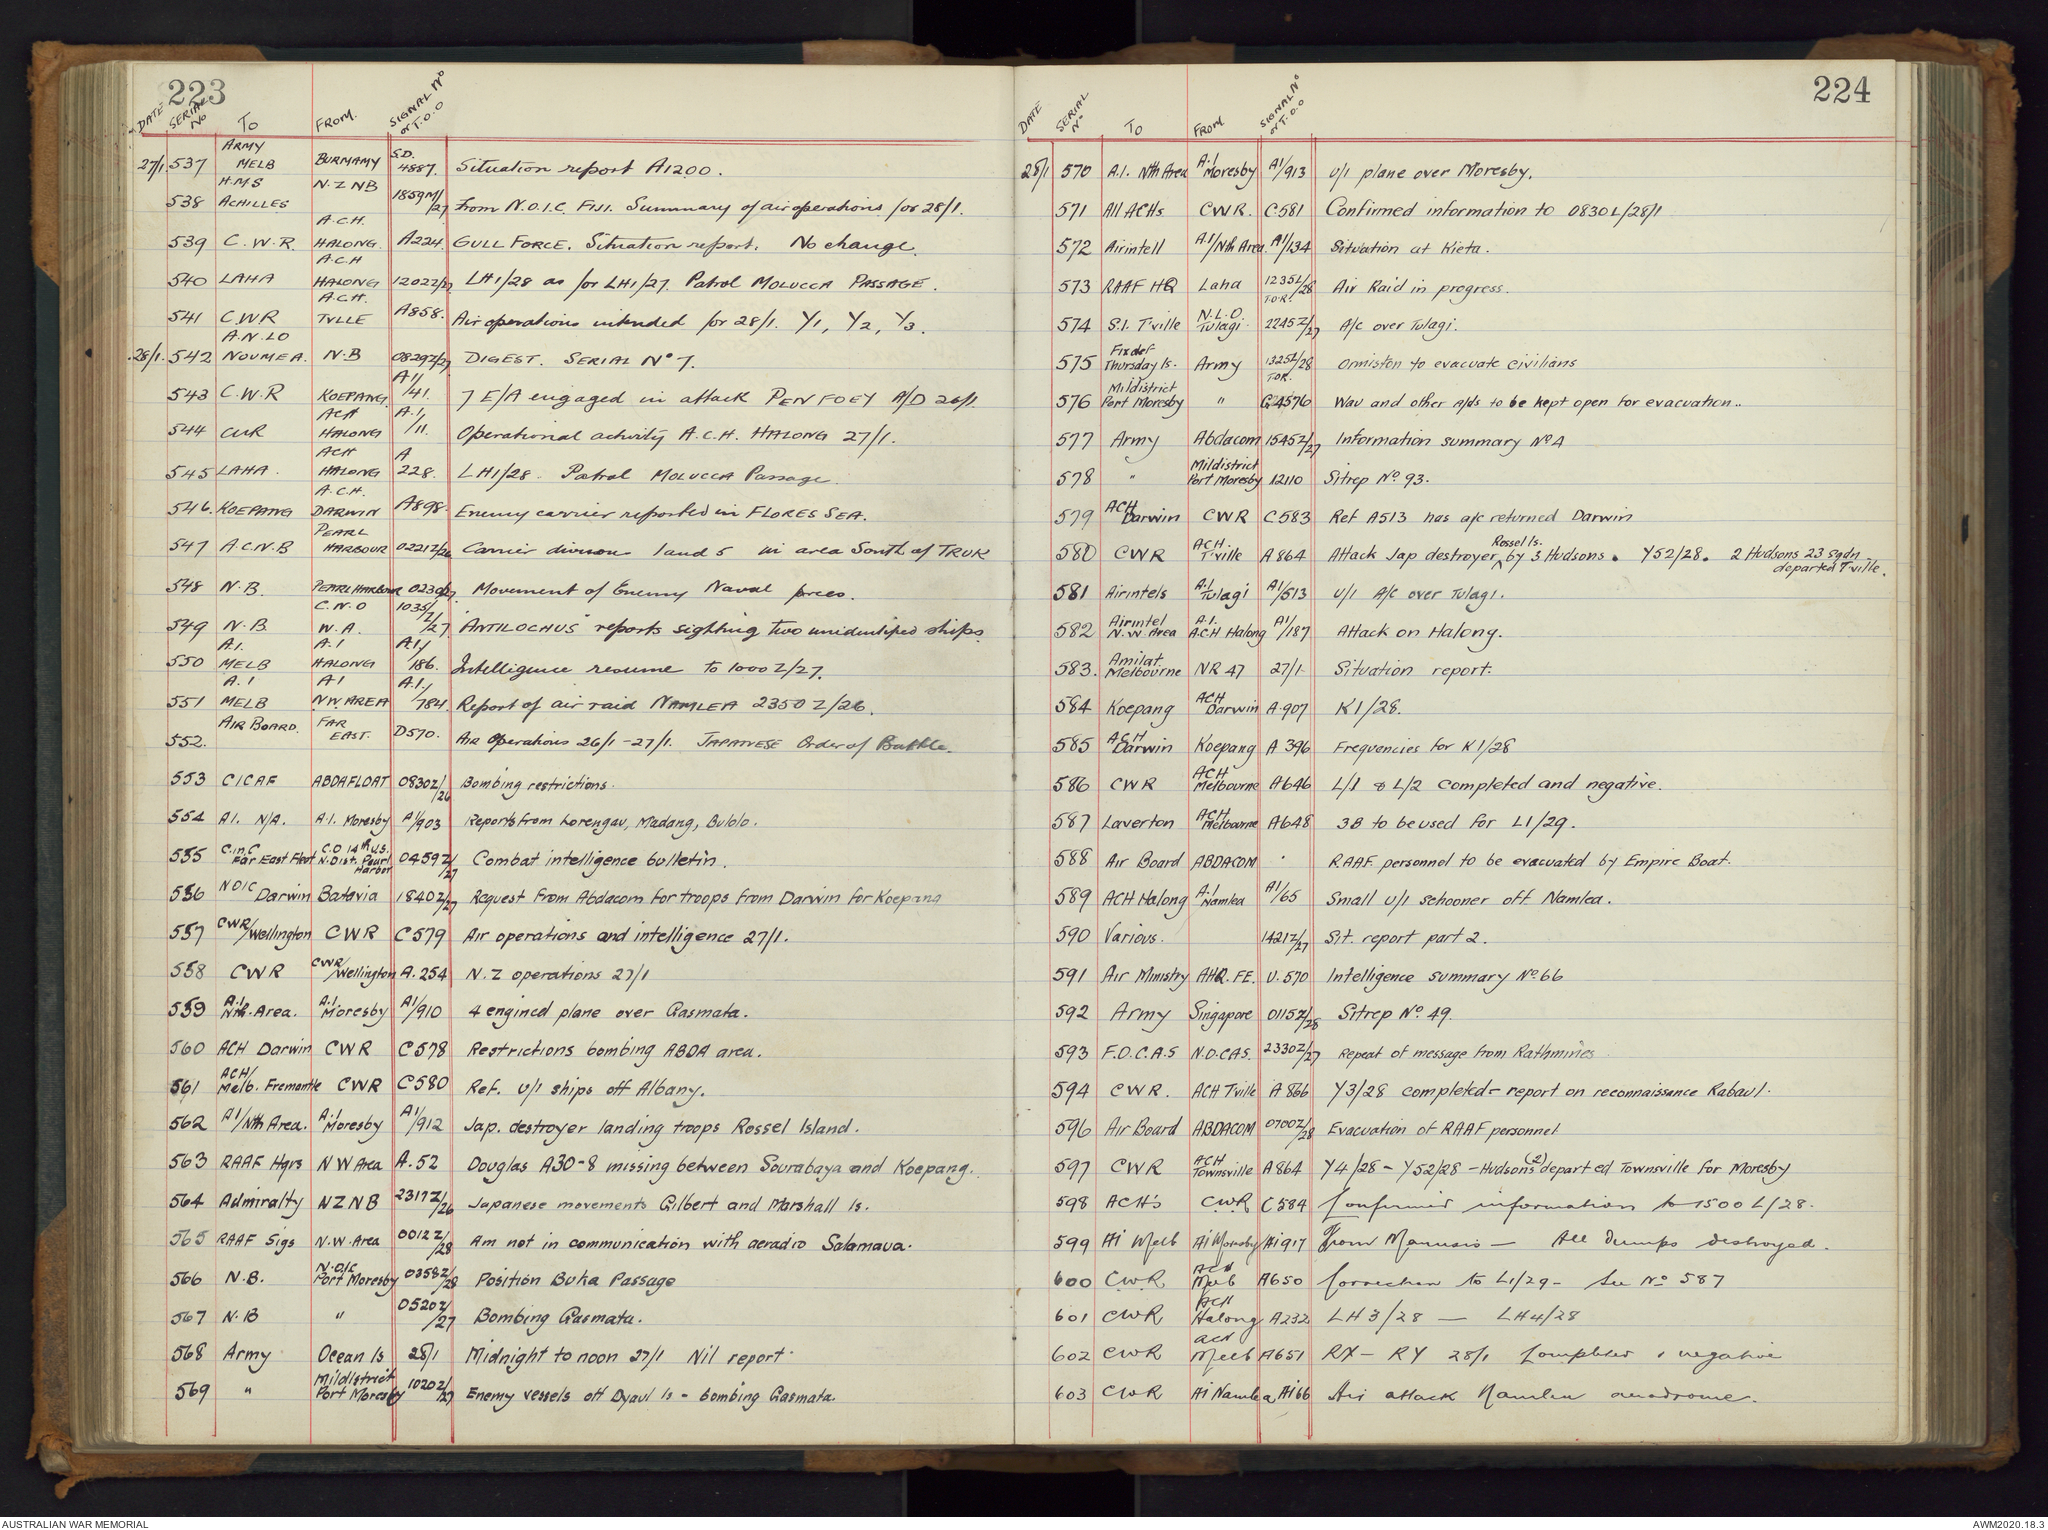 223
DATE SERIAL No TO FROM. SIGNAL No or T.O.O
27/1. 537 ARMY MELB BURMAMY S.D. 4587. Situation report A1200.
538 H.M.S ACHILLES N.Z NB 1859M/27 From N.O.I.C. FIJI. Summary of air operations for 28/1.
539 C.W.R A.C.H. HALONG. A224. GULL FORCE. Situation report. No change.
540 LAHA A.C.H HALONG 1202Z/27 LH1/28 as for LH1/27. Patrol MOLUCCA PASSAGE.
541 C.W.R A.C.H. TVLLE A858. Air operations intended for 28/1. Y1, Y2, Y3.
28/1. 542 A.N.LO NOUMEA. N.B 0829Z/27 DIGEST. SERIAL No 7.
543 C.W.R KOEPANG. A1/41. 7 E/A engaged in attack PENFOEY A/D 26/1.
544 CWR ACH HALONG A.1/11. Operational activity A.C.H. HALONG 27/1.
545 LAHA. ACH HALONG A 228. LH1/28. Patrol MOLUCCA Passage.
546. KOEPANG A.C.H. DARWIN A898. Enemy carrier reported in FLORES SEA.
547 A.C.N.B PEARL HARBOUR 0221Z/26 Carrier division 1 and 5 in area South of TRUK
548 N.B. PEARL HARBOUR 0230/27. Movement of Enemy Naval forces.
549 N.B. C.N.O W.A. 1035/Z/27 ANTILOCHUS reports sighting two unidentified ships.
550 A.1. MELB A.1 HALONG A.1/186. Intelligence resume to 1000Z/27.
551 A.1 MELB A1 N.W. AREA A.1./784 Report of air raid NAMLEA 2350Z/26.
552. AIR BOARD. FAR EAST. D570. Air Operations 26/1-27/1. JAPANESE Order of Battle.
553 CICAF ABDAFLOAT 0830Z/26 Bombing restrictions.
554 A1. N/A. A.1. Moresby A1/903 Reports from Lorengau, Madang, Bulolo.
555 C.in.C Far East Fleet C.O 14th U.S. N. Dist. Pearl Harbor 0459Z/27 Combat intelligence bulletin.
556 NOIC Darwin Batavia 1840Z/27 Request from Abdacom for troops from Darwin for Koepang
557 CWR/Wellington CWR C579 Air operations and intelligence 27/1.
558 CWR CWR/Wellington A.254 N.Z operations 27/1
559 A.1. Nth. Area. A.1. Moresby A1/910 4 engined plane over Gasmata.
560 ACH Darwin CWR C578 Restrictions bombing ABDA area.
561 ACH/Melb. Fremantle CWR C580 Ref. U/I ships off Albany.
562 A1/Nth Area. A.1 Moresby A1/912 Jap. destroyer landing troops Rossel Island.
563 RAAF Hqrs N W Area A.52 Douglas A30-8 missing between Sourabaya and Koepang.
564 Admiralty NZNB 2317Z/26 Japanese movements Gilbert and Marshall Is.
565 RAAF Sigs N.W. Area 0012Z/28 Am not in communication with aeradio Salamaua.
566 N.B. N.O.I.C Port Moresby 0358Z/28 Position Buka Passage
567 N.B " 0520Z/27 Bombing Gasmata.
568 Army Ocean Is 28/1 Midnight to noon 27/1 Nil report.
569 " Mildistrict Port Moresby 1020Z/27 Enemy vessels off Dyaul Is - bombing Gasmata.
224
DATE SERIAL No TO FROM SIGNAL No or T.O.O
28/1 570 A.1. Nth Area A.1 Moresby A1/913 U/I plane over Moresby.
571 All ACHs CWR. C.581 Confirmed information to 0830L/28/1
572 Airintell A.1/Nth Area. A1/134 Situation at Kieta.
573 RAAF HQ Laha 1235L/28 T.O.R. Air Raid in progress.
574 S.I. T'ville N.L.O. Tulagi 2245Z/27 A/c over Tulagi.
575 Fixdef Thursday Is. Army 1325L/28 T.O.R. Ormiston to evacuate civilians
576 Mildistrict Port Moresby " G4576 Wau and other A/ds to be kept open for evacuation..
577 Army Abdacom 1545Z/27 Information summary No 4
578 " Mildistrict Port Moresby 12110 Sitrep No. 93.
579 ACH Darwin CWR C583 Ref A513 has a/c returned Darwin
580 CWR ACH. T'ville A864 Attack Jap destroyer Rossel Is. by 3 Hudsons. Y52/28. 2 Hudsons 23 Sqdn departed T'ville.
581 Airintels A.1 Tulagi A1/513 U/I A/c over Tulagi.
582 Airintel N.W. Area A.1. A.C.H Halong A1/187 Attack on Halong.
583. Amilat Melbourne NR 47 27/1 Situation report.
584 Koepang ACH Darwin A.907 K1/28.
585 ACH Darwin Koepang A 396 Frequencies for K1/28
586 CWR ACH Melbourne A646 L/1 & L/2 completed and negative.
587 Laverton ACH Melbourne A648 3B to be used for L1/29.
588 Air Board ABDACOM RAAF personnel to be evacuated by Empire Boat.
589 ACH Halong A.1 Namlea A1/65 Small U/I schooner off Namlea.
590 Various. 1421Z/27 Sit. report part 2.
591 Air Ministry AHQ. F.E. U.570 Intelligence summary No. 66
592 Army Singapore 0115Z/28 Sitrep No. 49.
593 F.O.C.A.S N.O.CAS. 2330Z/27 Repeat of message from Rathmines
594 CWR. ACH T'ville A 866 Y3/28 completed - report on reconnaissance Rabaul.
596 Air Board ABDACOM 0700Z/28 Evacuation of RAAF personnel
597 CWR ACH Townsville A864 Y4/28 - Y52/28 - Hudsons (2) departed Townsville for Moresby
598 ACH's C.W.R C584 Confirmed information to 1500L/28.
599 Ai Melb Ai Moresby Ai917 From Manusis - All dumps destroyed.
600 C.W.R ACH Melb A650 Correction to L1/29 - See No 587
601 CWR ACH Halong A232 LH3/28 - LH4/28
602 CWR ACH Melb A651 RX - RY 28/1 Completed & negative
603 CWR Ai Namlea Ai66 Air attack Namlea aerodrome.
AUSTRALIAN WAR MEMORIAL
AWM2020.18.3